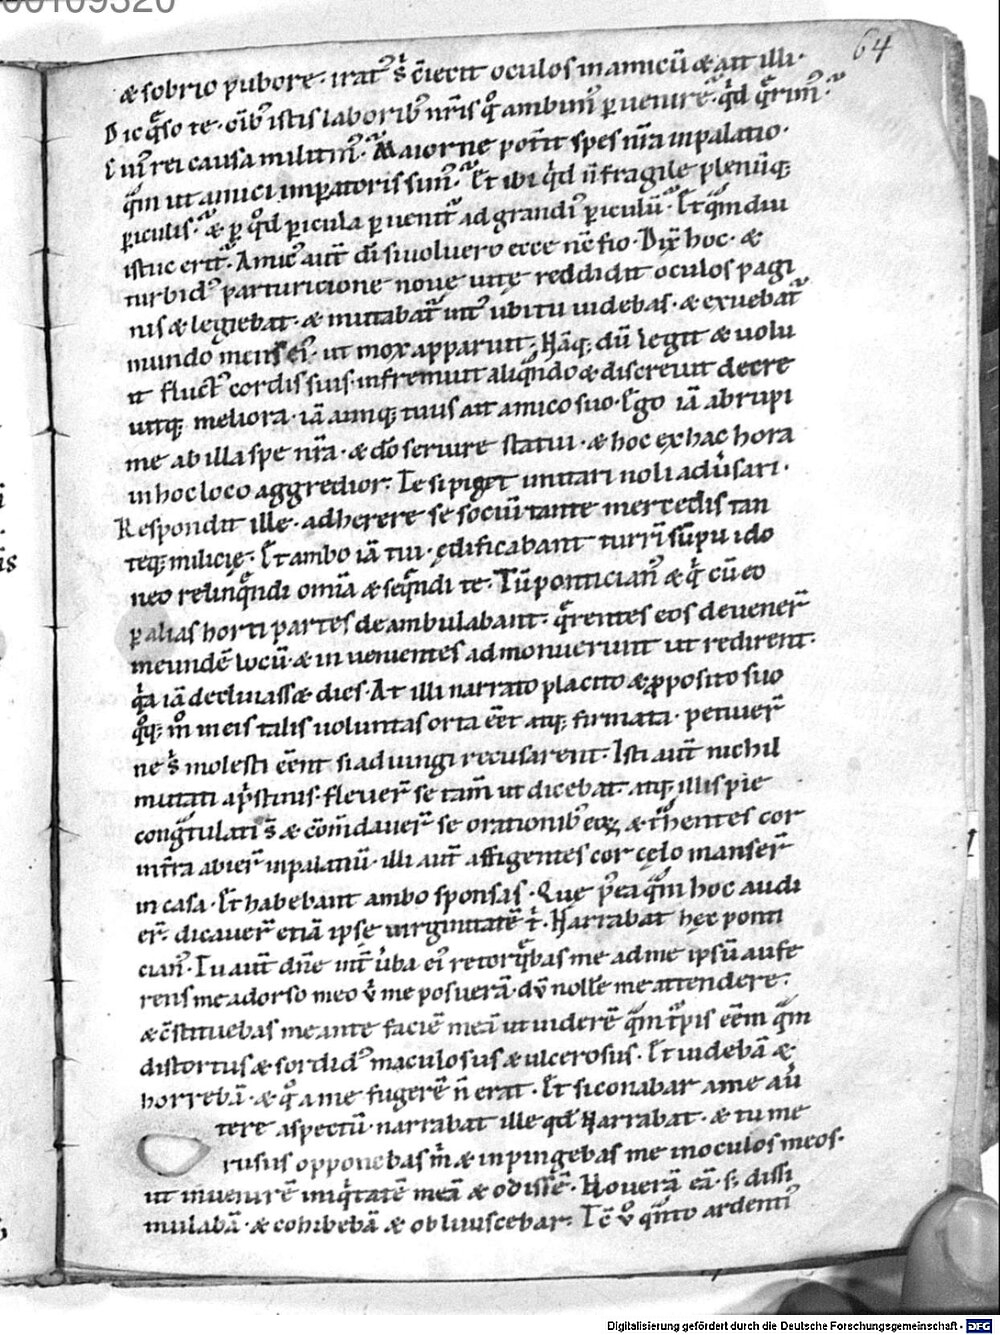 00109320
64
& sobrio pudore. irat᷒ s᷒ ċiecit oculos in amicū & ait illi.
Dic q̄so te. oīb᷒ istis laborib᷒ nr̄is q̊ ambim᷒ puenire. qd̓ q̄rim᷒.
Cui᷒ rei causa militam᷒. Maior ne pot̄it spes nr̄a in palatio.
q̄m ut amici imp̄atoris sim᷒. Et ibi qd̓ n̄ fragile plenūq;
p̱iculis. & p̱ q̊d p̱icula p̱uenit᷒ ad grandi᷒ p̱iculū. Et q̄m diu
istuc erit. Amic᷒ aut̄ dī si uoluero ecce nc̄ fio. Dix̄ hoc. &
turbid᷒ parturicione noue uitę reddidit oculos pagi
nis & legiebat. & mutabat᷒ int᷒ ubi tu uidebas. & exuebat᷒
mundo mens ei᷒. ut mox apparuit. Nāq; dū legit & uolu
it fluct᷒ cordis sui. infremuit aliq̄ndo & discreuit decre
uitq; meliora. iā āimq; tuus ait amico suo. Ego iā abrupi
me ab illa spe nr̄a. & dō seruire statui. & hoc ex hac hora
in hoc loco aggredior. Te si piget imitari noli adūsari.
Respondit ille. adherere se sociū tante mercedis tan
teq; milicię. Et ambo iā tui. ędificabant turrī sūpu ido
neo relinq̄ndi omīa & seq̄ndi te. Tū pontician᷒ & q̓ cū eo
p̱ alias horti partes deambulabant. q̄rentes eos deuener̄
in eundē locū. & inuenientes admonuerunt ut redirent.
q̓a iā declinass& dies. At illi narrato placito & p̱posito suo
q̊q; m̊ in eis talis uoluntas orta eēt atq; firmata. petiuer̄
ne s᷒ molesti eēnt si adiungi recusarent. Isti aut̄ nichil
mutati a p̓stinis. fleuer̄ se tam̄ ut dicebat. atq; illis pie
congr̄tulati s̄ & cōm̄dauer̄ se orationib᷒ eoꝝ & tͣhentes cor
in tr̄a abier̄ in palatiū. illi aut̄ affigentes cor cęlo manser̄
in casa. Et habebant ambo sponsas. Que p᷒ea q̄m hoc audi
er̄. dicauer̄ etiā ipse uirginitatē t̓. Narrabat hęc ponti
cian᷒. Tu aut̄ dn̄e int̄ ūba ei᷒ retorq̄bas me ad me ipsū aufe
rens me a dorso meo ů me posuerā. dū nolle me attendere.
& c̄stituebas me ante faciē meā ut uiderē q̄m tͬpis eēm q̄m
distortus & sordid᷒ maculosus & ulcerosus. Et uidebā &
horrebā. & q̊ a me fugerē n̄ erat. Et si conabar a me aū
tere aspectū. narrabat ille qd̓ Narrabat. & tu me
rusus opponebas m̓ & inpingebas me in oculos meos.
ut inuenirē iniq̓tatē meā & odissē. Nouerā eā. s; dissi
mulabā. & cohibebā & obliuiscebar. Tc̄ ů q̄nto ardenti᷒
Digitalisierung gefördert durch die Deutsche Forschungsgemeinschaft - DFG